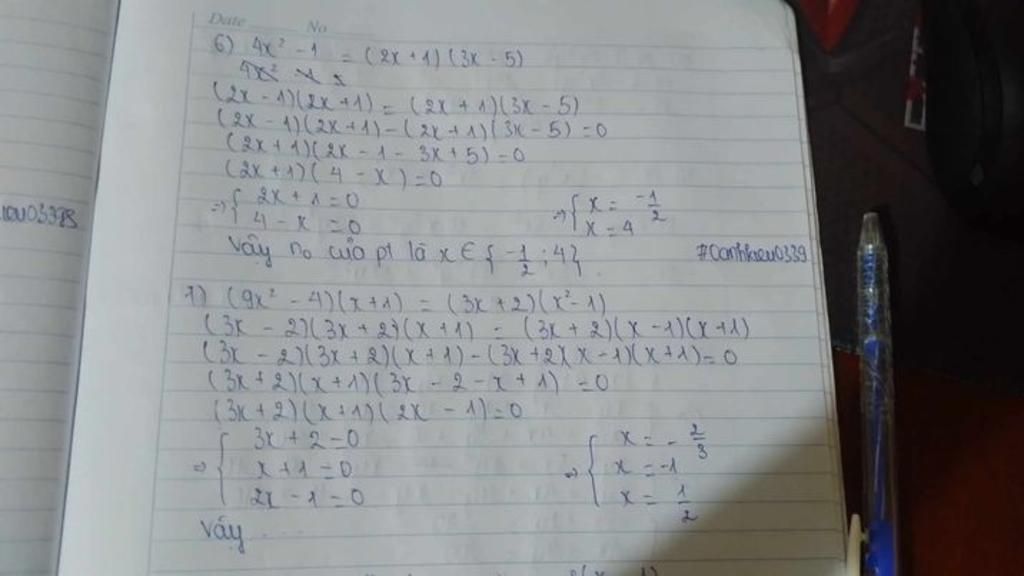 Date No
6) 4x² - 1 = (2x + 1)(3x - 5)
(2x - 1)(2x + 1) = (2x + 1)(3x - 5)
(2x - 1)(2x + 1) - (2x + 1)(3x - 5) = 0
(2x + 1)(2x - 1 - 3x + 5) = 0
(2x + 1)(4 - x) = 0
=> { 2x + 1 = 0 => { x = -1/2
4 - x = 0 x = 4
Vậy n₀ của pt là x ∈ { -1/2 ; 4 } #Oanhkieu0339
7) (9x² - 4)(x + 1) = (3x + 2)(x² - 1)
(3x - 2)(3x + 2)(x + 1) = (3x + 2)(x - 1)(x + 1)
(3x - 2)(3x + 2)(x + 1) - (3x + 2)(x - 1)(x + 1) = 0
(3x + 2)(x + 1)(3x - 2 - x + 1) = 0
(3x + 2)(x + 1)(2x - 1) = 0
=> { 3x + 2 = 0 => { x = - 2/3
x + 1 = 0 x = -1
2x - 1 = 0 x = 1/2
Vậy ....